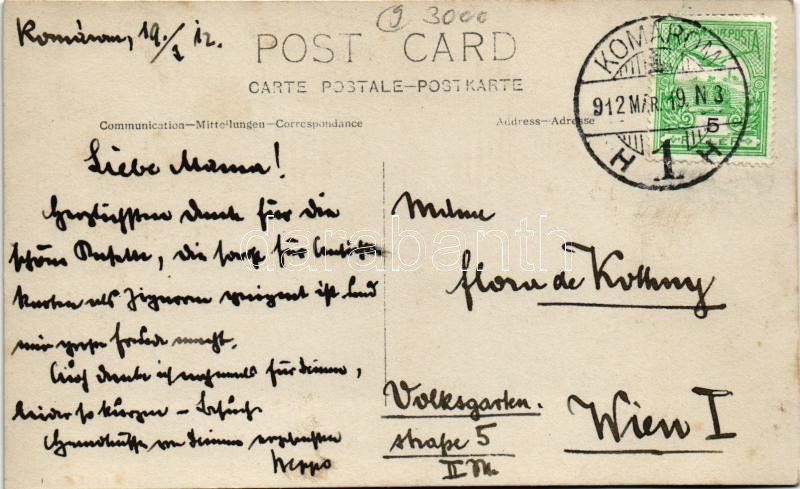 Komárom, 19./3 12.
3000
POST CARD
CARTE POSTALE—POSTKARTE
Communication—Mitteilungen—Correspondance
Address—Adresse
KOMÁROM
912 MÁR. 19. N 3
H 1 H
POSTA
5
Liebe Mama!
Herzlichsten Dank für die
schöne Kasette, die sowohl für
karten als Zigarren geeignet ist und
mir große Freude macht.
Auch danke ich nochmals für Deinen,
leider so kurzen – Besuch.
Handküsse von Deinem ergebensten
Beppo
Mdme
Flora de Kottmy
Volksgarten-
straße 5
Wien I
darabanth